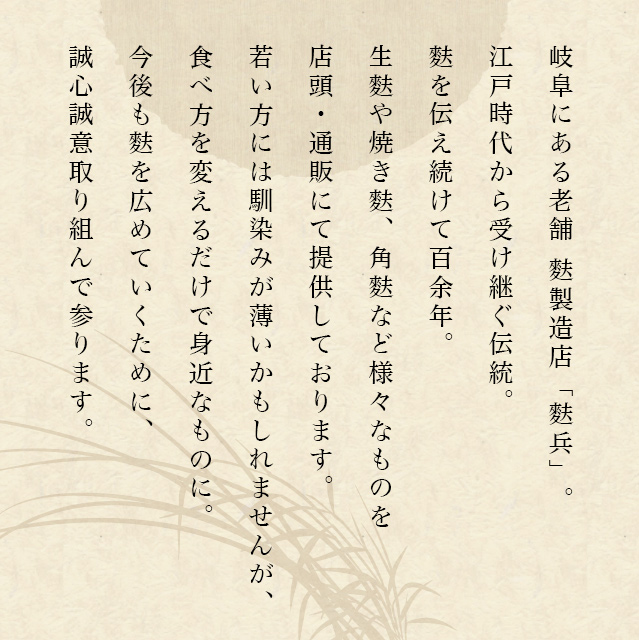 岐阜にある老舗 麩製造店「麩兵」。
江戸時代から受け継ぐ伝統。
麩を伝え続けて百余年。
生麩や焼き麩、角麩など様々なものを
店頭・通販にて提供しております。
若い方には馴染みが薄いかもしれませんが、
食べ方を変えるだけで身近なものに。
今後も麩を広めていくために、
誠心誠意取り組んで参ります。